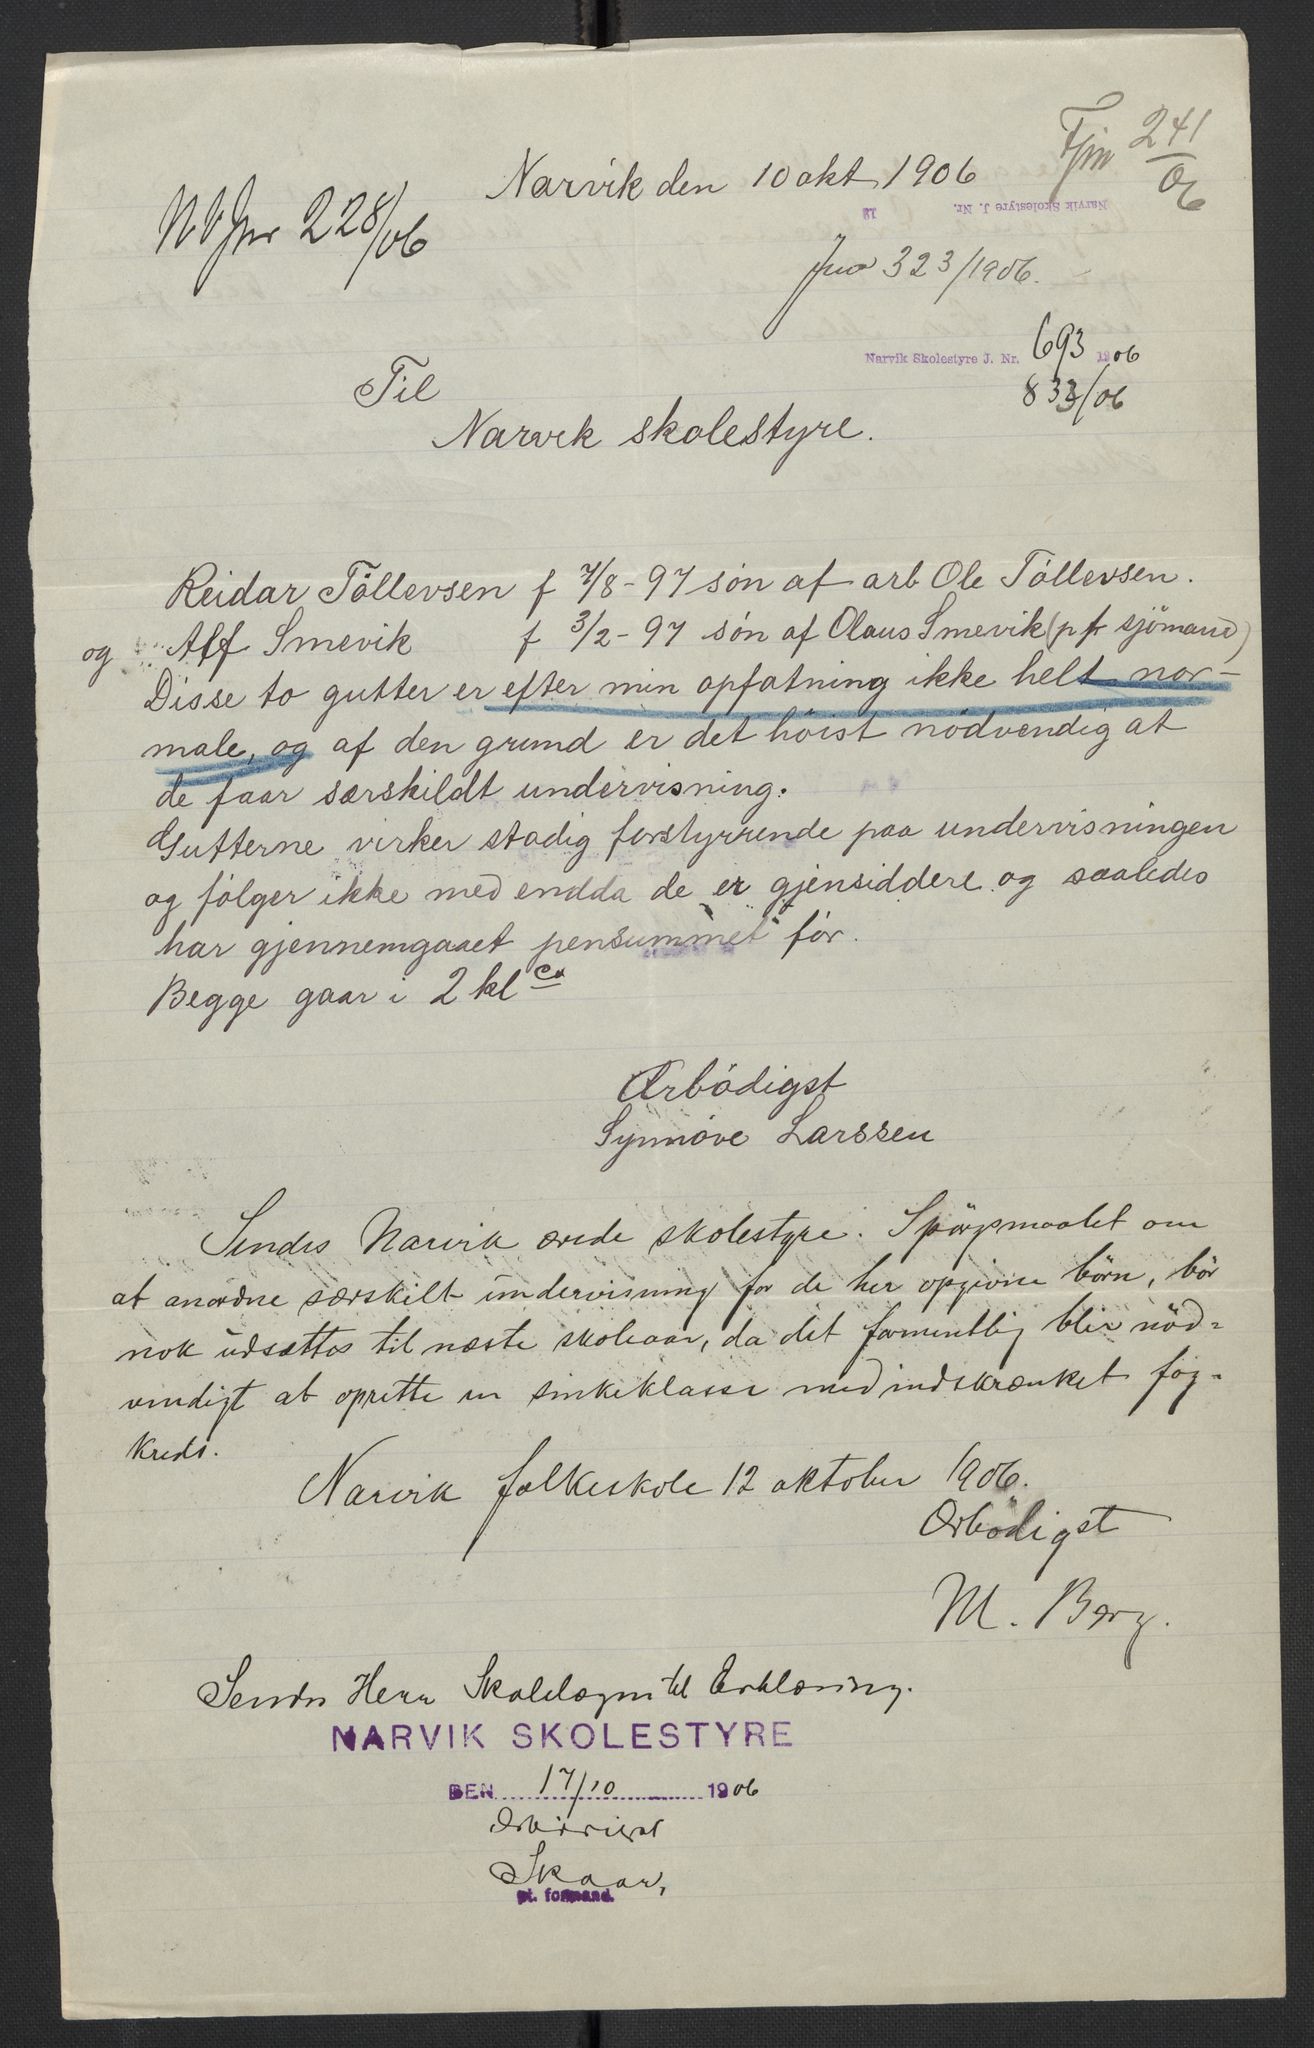 Fjm 241/06
Narvik den 10 okt 1906
Narvik Skolestyre J. Nr. 19
NVJnr 228/06
Jno 323/1906.
Narvik Skolestyre J. Nr. 693 1906
833/06
Til
Narvik skolestyre.
Reidar Töllevsen f 7/8-97 sön af arb Ole Töllevsen.
og Alf Smevik f 3/2-97 sön af Olaus Smevik (p fr sjömand)
Disse to gutter er efter min opfatning ikke helt nor-
male, og af den grund er det höist nödvendig at
de faar særskildt undervisning.
Gutterne virker stadig forstyrrende paa undervisningen
og fölger ikke med endda de er gjensiddere og saaledes
har gjennemgaaet pensummet för.
Begge gaar i 2 kl ca
Ærbödigst
Synnöve Larssen
Sendes Narvik ærede skolestyre. Spörgsmaalet om
at anordne særskilt undervisning for de her opgivne börn, bör
nok udsættes til næste skoleaar, da det formentlig blir nöd=
vendigt at oprette en sinkeklasse med indskrænket fag-
kreds.
Narvik folkeskole 12 oktober 1906.
Ærbödigst
M. Berg.
Sendes Herr Skolelægen til Erklæring.
NARVIK SKOLESTYRE
DEN 17/10 1906
Ærbödigst
Skaar,
pt. formand.